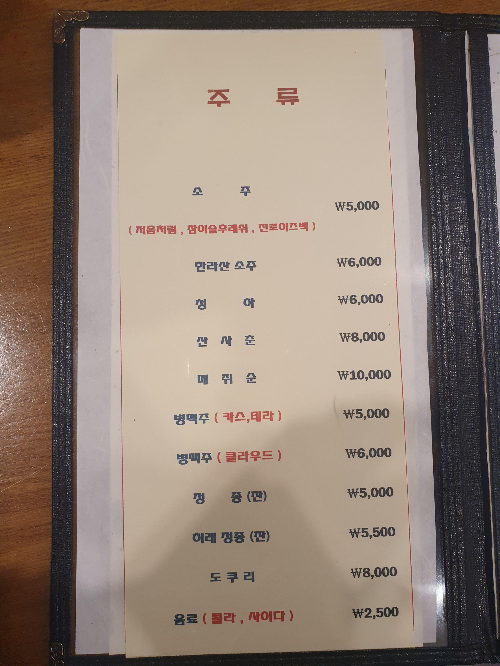 주 류
소 주
₩5,000
( 처음처럼 , 참이슬후레쉬 , 진로이즈백 )
한라산 소주 ₩6,000
청 하 ₩6,000
산 사 춘 ₩8,000
매 취 순 ₩10,000
병맥주 ( 카스,테라 ) ₩5,000
병맥주 ( 클라우드 ) ₩6,000
정 종 (잔) ₩5,000
히레 정종 (잔) ₩5,500
도 쿠 리 ₩8,000
음료 ( 콜라 , 사이다 ) ₩2,500